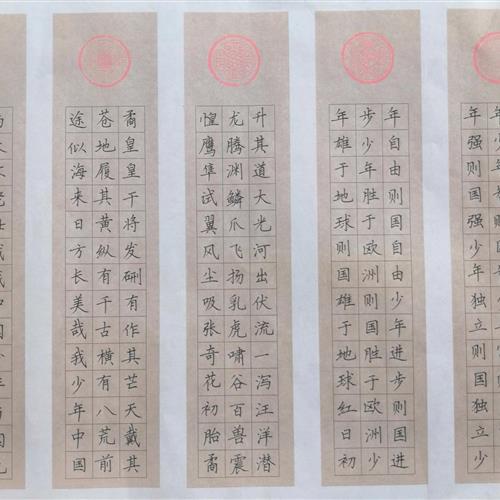 年强则国强少年独立则国独立少
年自由则国自由少年进步则国进
步少年胜于欧洲则国胜于欧洲少
年雄于地球则国雄于地球红日初
升其道大光河出伏流一泻汪洋潜
龙腾渊鳞爪飞扬乳虎啸谷百兽震
惶鹰隼试翼风尘吸张奇花初胎矞
矞皇皇干将发硎有作其芒天戴其
苍地履其黄纵有千古横有八荒前
途似海来日方长美哉我少年中国